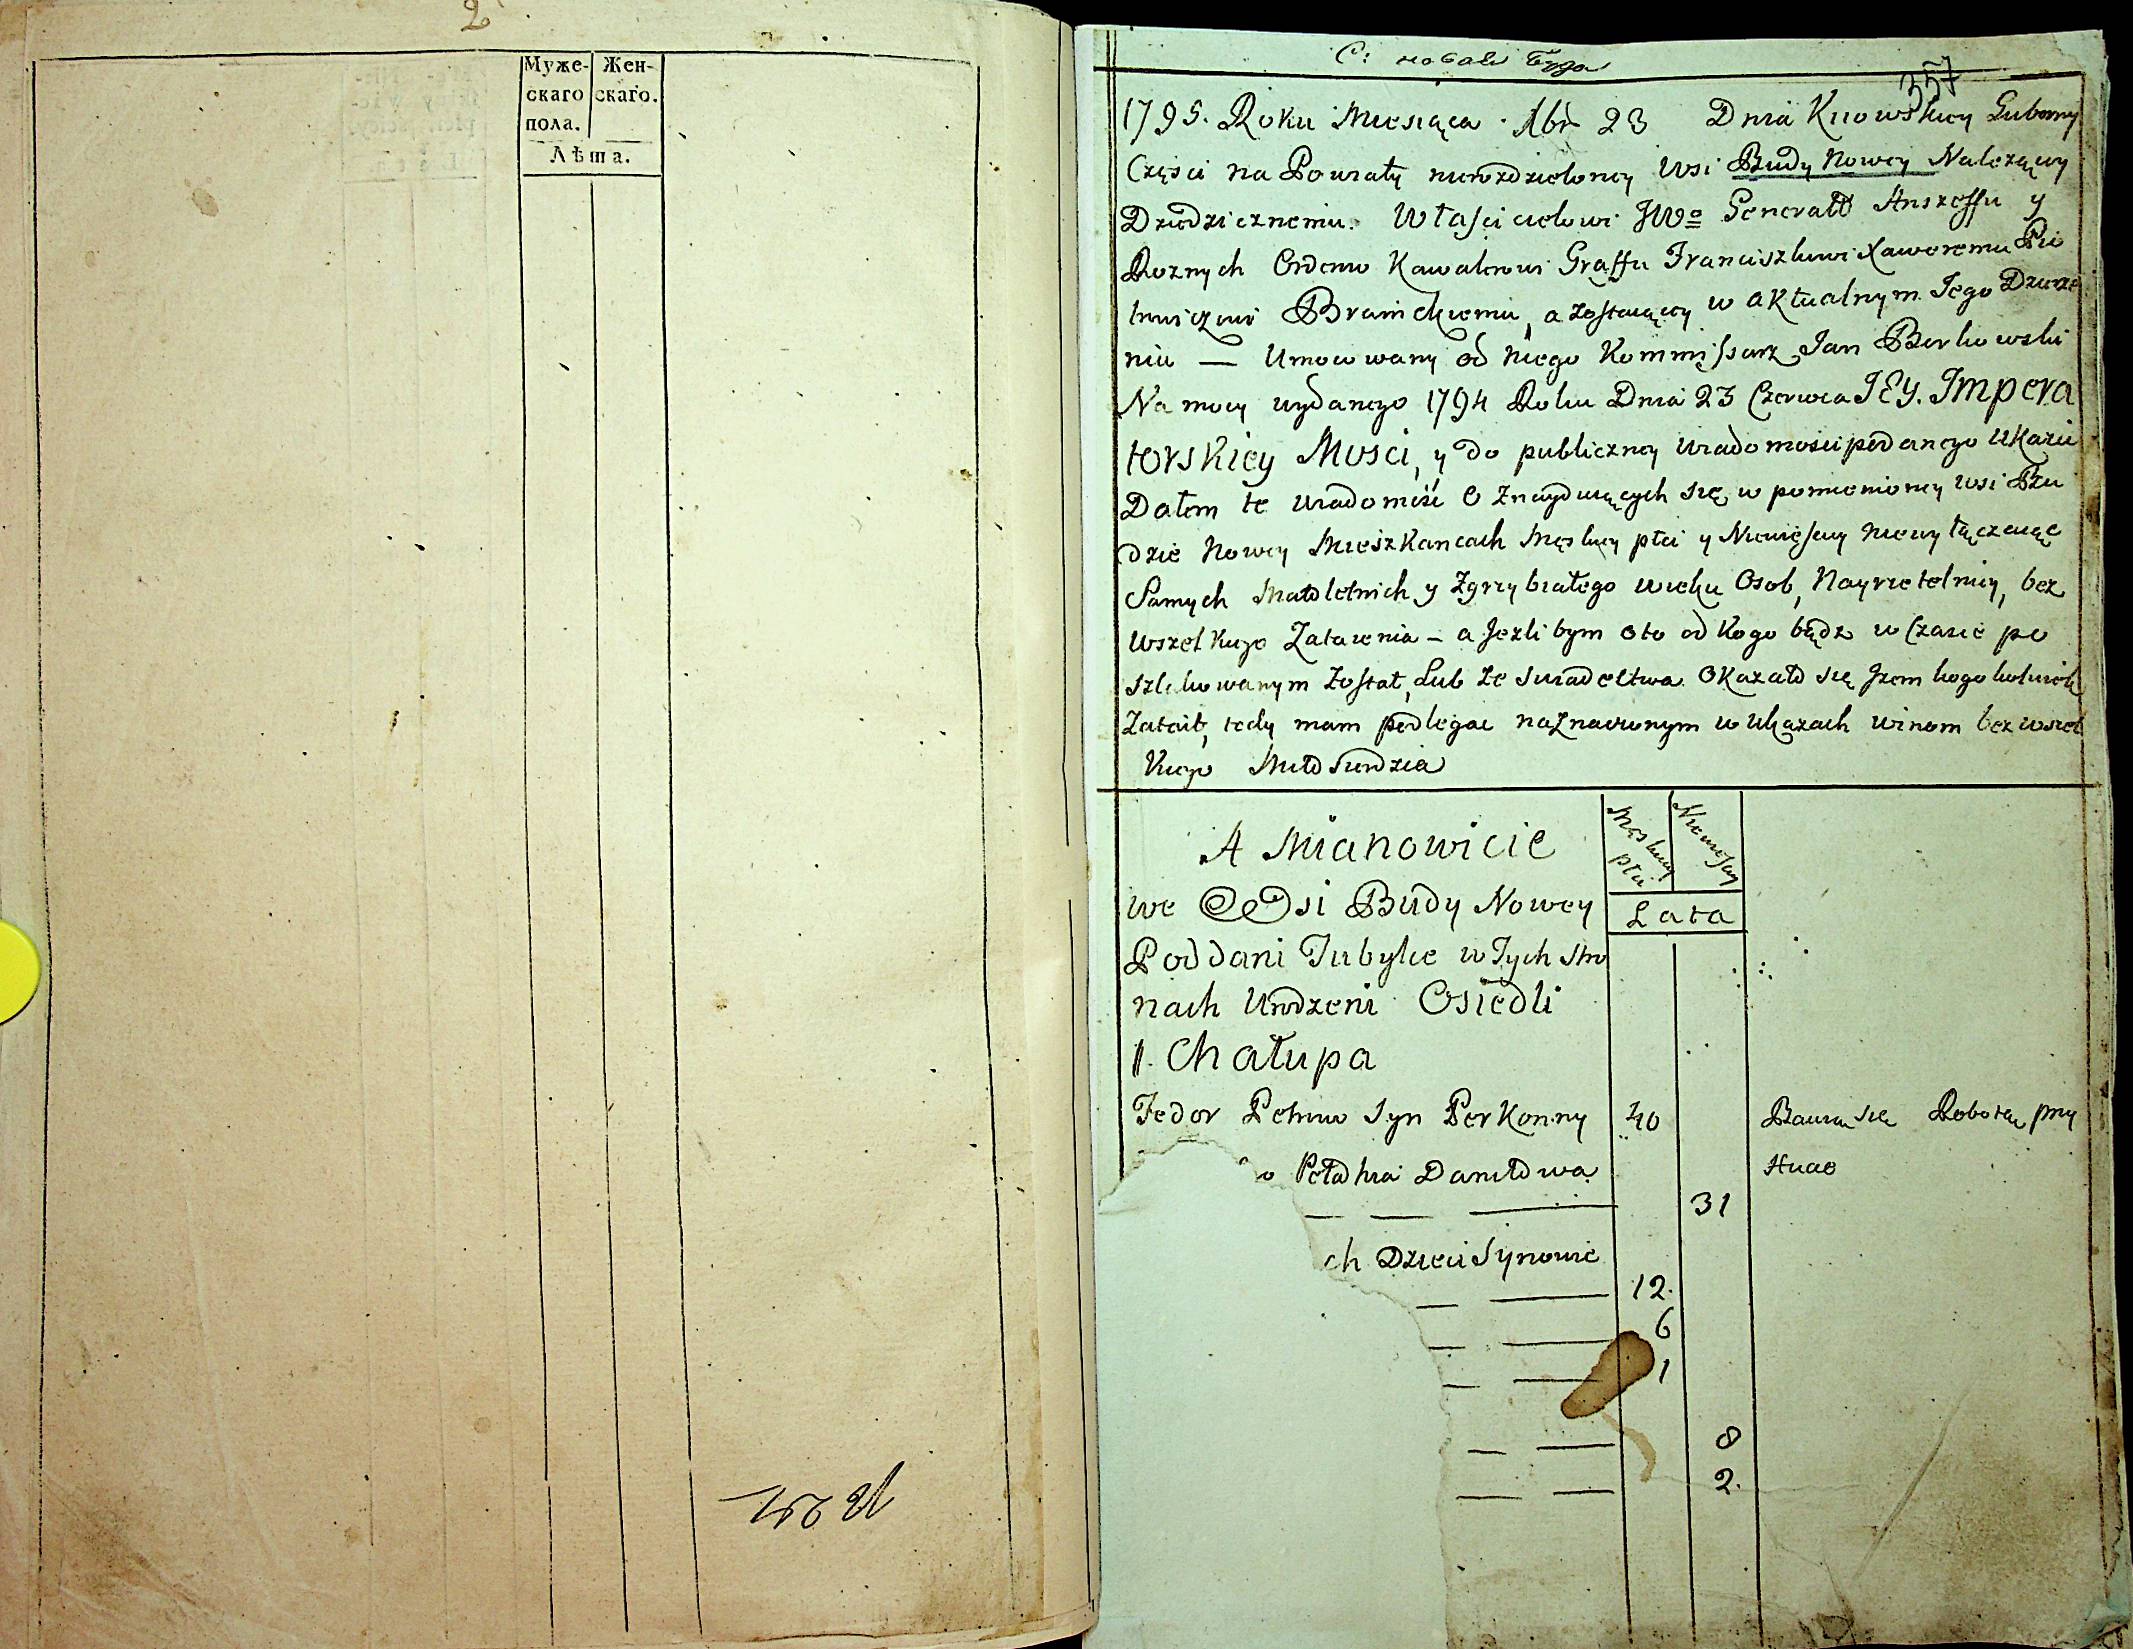 2
Муже- Жен-
скаго скаго.
пола.
Лѣта.
С: новая Буда
357
1795. Roku Miesiąca 23 Dnia Kiiowskiey Guberny
Części na Powiaty nierozdzieloney Wsi Budy Nowey Należącey
Dziedzicznemu Właścicielowi JWo Generałł Anszeffu y
Roznych Orderow Kawalerowi Graffu Franciszkowi Xaweremu Pio
trowiczowi Branickiemu, a zostaiącey w aktualnym Jego Dzierże
niu — Umocowany od niego Kommissarz Jan Berkowski
Na mocy wydanego 1794 Roku Dnia 23 Czerwca JEy. Impera
torskiey Mosci, y do publiczney wiadomosci podanego Ukazu
Dałem te wiadomość o znayduiących się w pomienioney wsi Bu
dzie Nowey Mieszkancach Męskiey płci y Niewiesciey niewyłączaiąc
Samych Małoletnich y Zgrzybiałego wieku Osob, Nayrzetelniey, bez
wszelkiego Zataienia – a Jeżlibym oto od kogo bądz w Czasie po
szlakowanym został, Lub ze swiadectwa okazało się żem kogokolwiek
Zataił, tedy mam podlegac naznaczonym w Ukazach winom bez wszel
kiego Miłosierdzia
A Mianowicie
Męskiey płci
Niewiesciey
we Wsi Budy Nowey
Lata
Poddani Tubylce w Tych stro
nach Urodzeni Osiedli
1. Chałupa
Fedor Petrow Syn Perkonny 40 Bawi się Robotą przy
o Pełahia Daniłowa
31
ch Dzieci Synowie
12.
6
1
8
2.